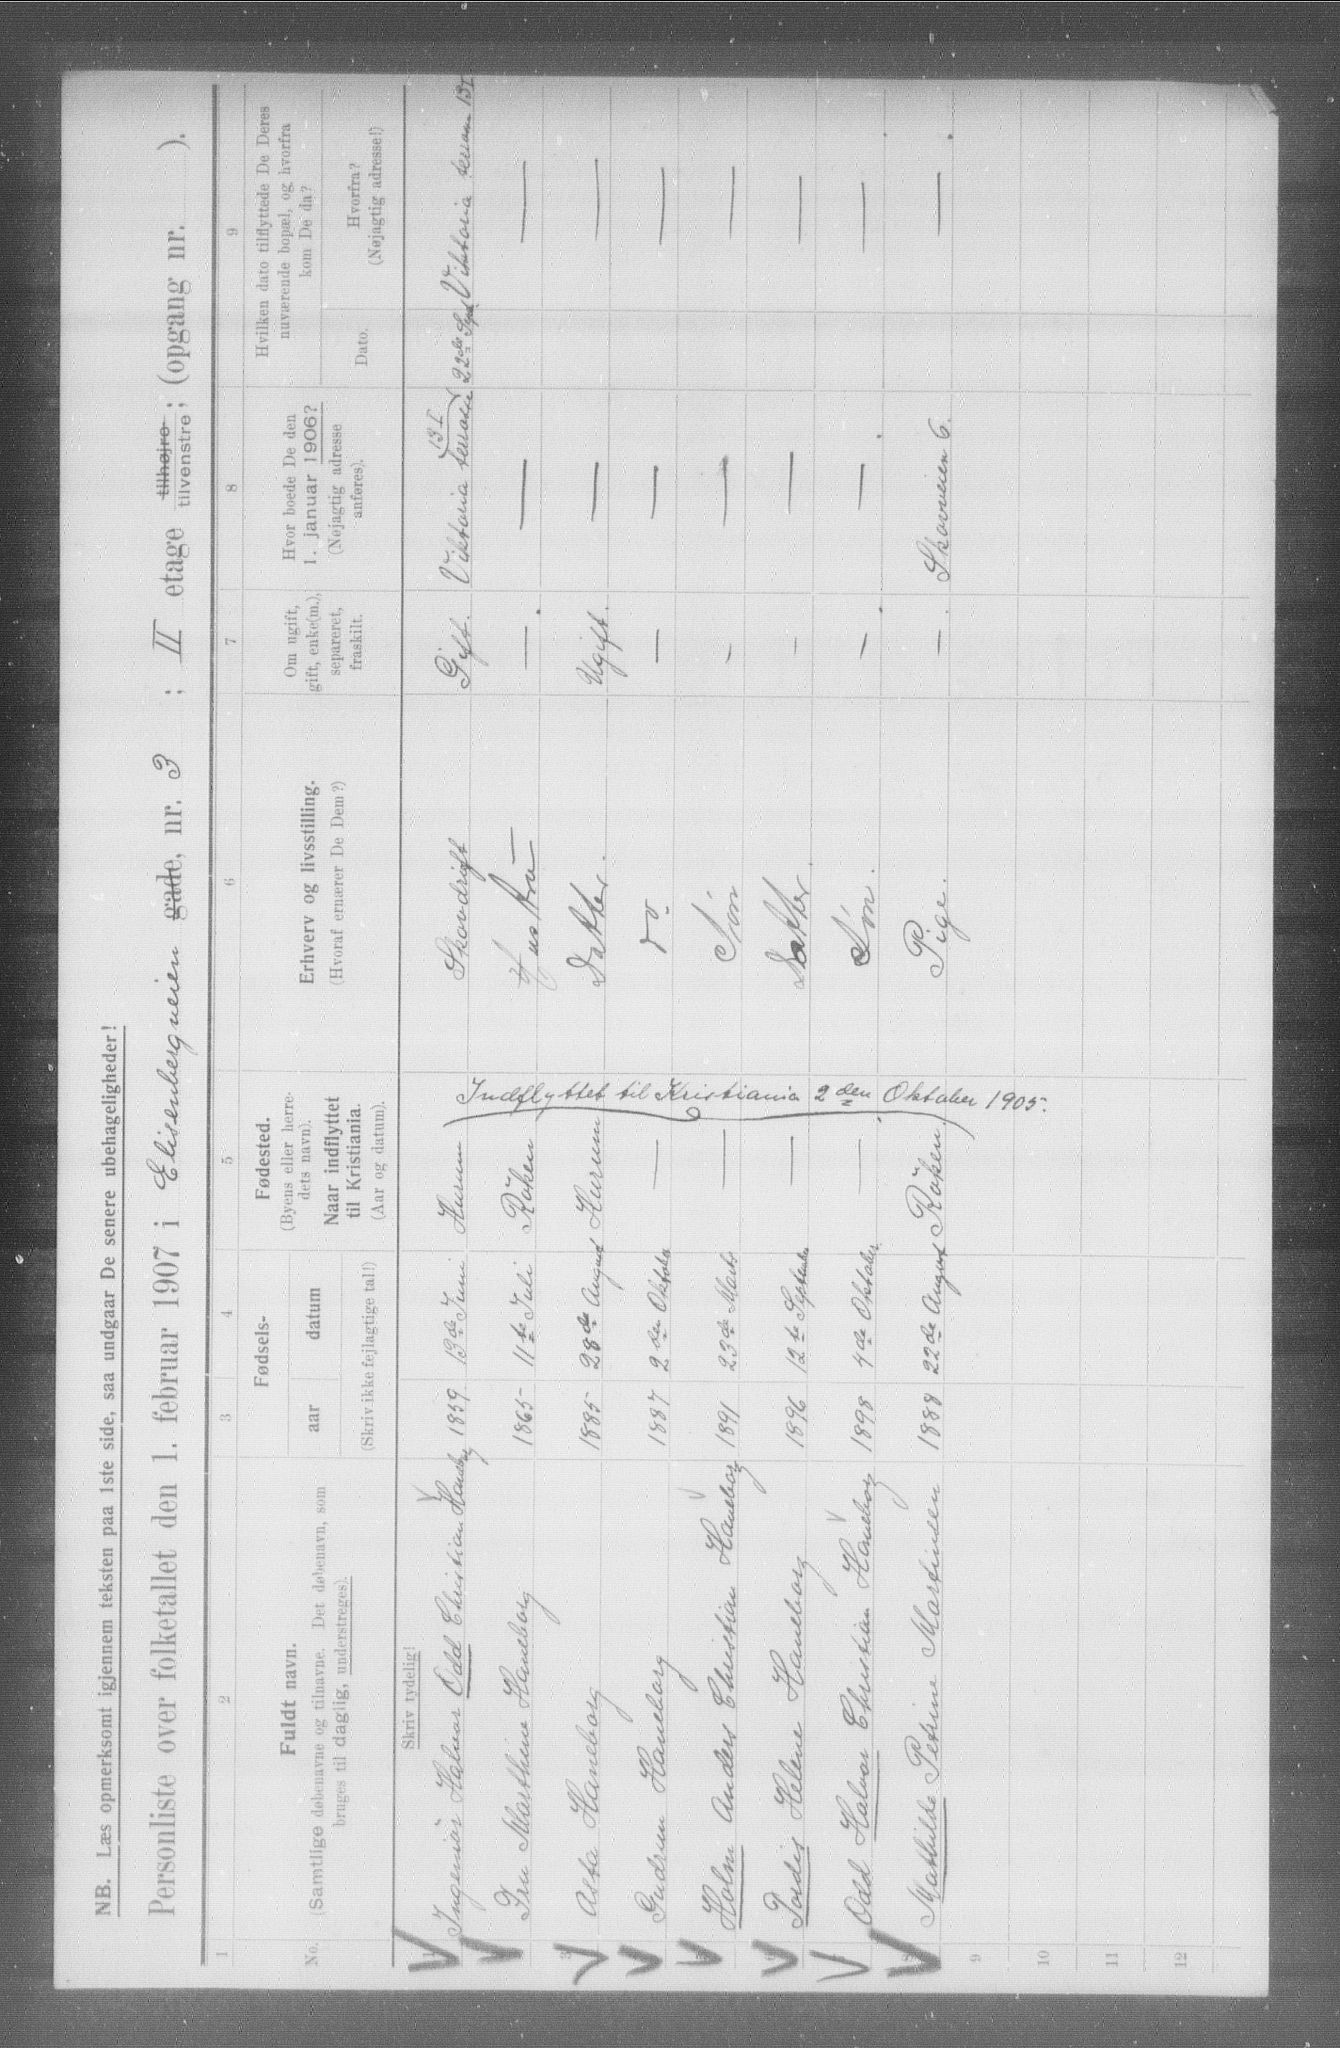 NB. Læs opmerksomt igjennem teksten paa 1ste side, saa undgaar De senere ubehageligheder!
Personliste over folketallet den 1. februar 1907 i Elisenbergveien gade, nr. 3 ; II etage tilhøjre tilvenstre; (opgang nr. ).
1 2 3 4 5 6 7 8 9
No.
Fuldt navn.
(Samtlige døbenavne og tilnavne. Det døbenavn, som
bruges til daglig, understreges).
Fødsels-
aar datum
(Skriv ikke fejlagtige tal!)
Fødested.
(Byens eller herre-
dets navn).
Naar indflyttet
til Kristiania.
(Aar og datum).
Erhverv og livsstilling.
(Hvoraf ernærer De Dem?)
Om ugift,
gift, enke(m.),
separeret,
fraskilt.
Hvor boede De den
1. januar 1906?
(Nøjagtig adresse
anføres).
Hvilken dato tilflyttede De Deres
nuværende bopæl, og hvorfra
kom De da?
Dato.
Hvorfra?
(Nøjagtig adresse!)
Skriv tydelig!
1 Ingeniør Halvor Odd Christian Haneborg 1859 13de Juni Hurum Skovdrift Gift. Viktoria terrasse 13 I 22de Sept. Viktoria terrasse 13 I
Fru Marthine Haneborg 1865 11te Juli Röken Hustru — — —
3 Asta Haneborg 1885 28de August Hurum Datter. Ugift. — —
Gudrun Haneborg 1887 2den Oktober — do — — —
Holm Anders Christian Haneborg 1891 23de Marts — Sön — — —
Tordis Helene Haneborg 1896 12te September — Datter. — — —
Odd Halvor Christian Haneborg 1898 4de Oktober — Sön. — — —
8 Mathilde Petrine Martinsen 1888 22de August Röken. Pige. — Skovveien 6. —
Indflyttet til Kristiania 2den Oktober 1905.
9
10
11
12